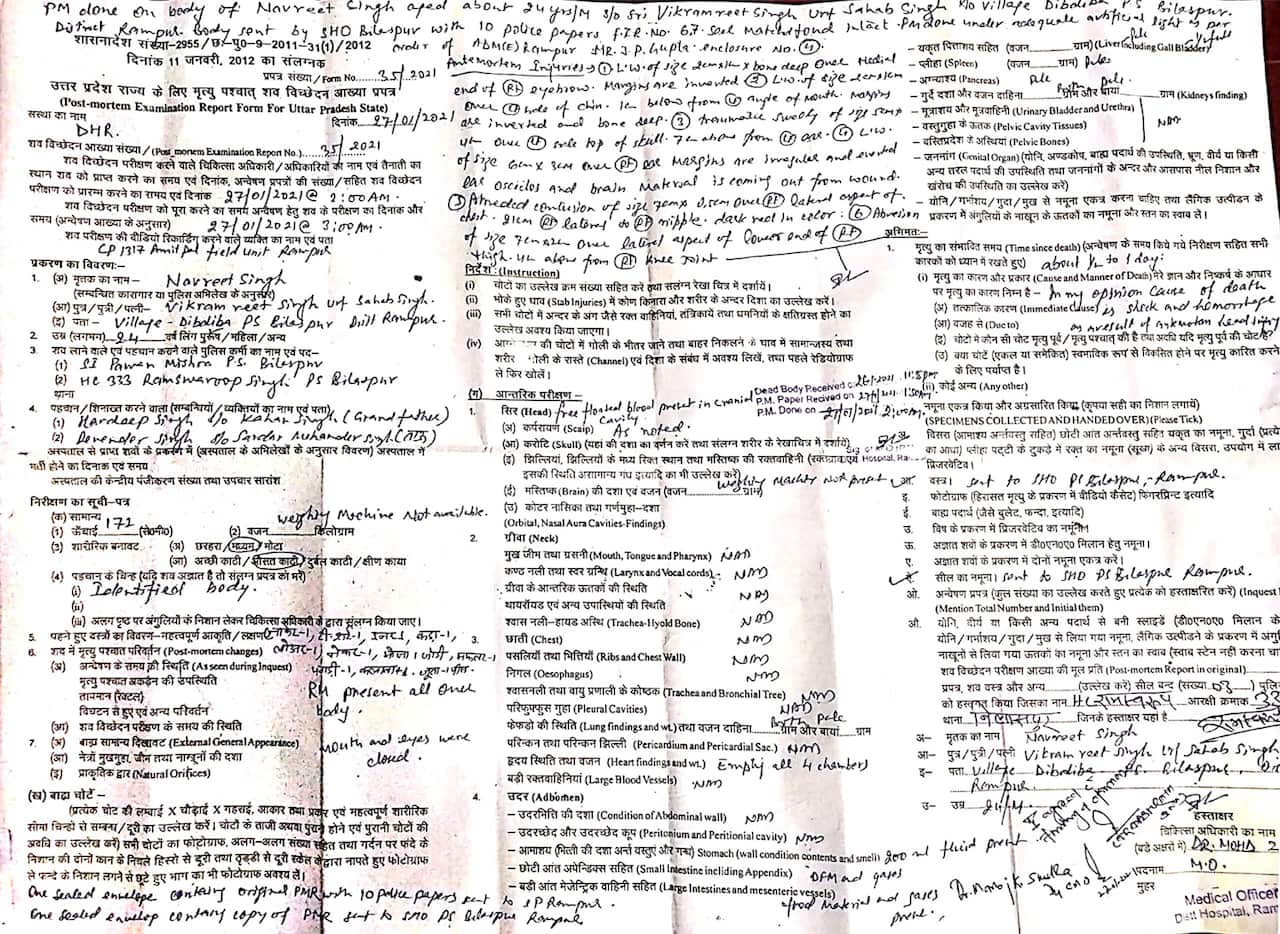 PM done on body of Navreet Singh aged about 24 yrs/M s/o Sri Vikramreet Singh Urf Sahab Singh R/o Village Dibdiba PS Bilaspur
District Rampur body sent by SHO Bilaspur with 10 police papers F.I.R. No. 67. Seal Matched found intact. PM done under adequate artificial light as per
order of ADM(E) Rampur MR. J.P. Gupta enclosure No. 4
शासनादेश संख्या-2955/छ-पु0-9-2011-31(1)/2012
दिनांक 11 जनवरी, 2012 का संलग्नक
प्रपत्र संख्या/Form No. 35/2021
उत्तर प्रदेश राज्य के लिए मृत्यु पश्चात् शव विच्छेदन आख्या प्रपत्र
(Post-mortem Examination Report Form For Uttar Pradesh State)
संस्था का नाम दिनांक- 27/01/2021
DHR.
शव विच्छेदन आख्या संख्या/(Post mortem Examination Report No.) 35/2021
शव विच्छेदन परीक्षण करने वाले चिकित्सा अधिकारी/अधिकारियों का नाम एवं तैनाती का
स्थान शव को प्राप्त करने का समय एवं दिनांक, अन्वेषण प्रपत्रों की संख्या/सहित शव विच्छेदन
परीक्षण को प्रारम्भ करने का समय एवं दिनांक 27/01/2021 @ 2:00 AM.
शव विच्छेदन परीक्षण को पूरा करने का समय अन्वेषण हेतु शव के परीक्षण का दिनांक और
समय (अन्वेषण आख्या के अनुसार) 27/01/2021 @ 3:00 AM.
शव परीक्षण की वीडियो रिकार्डिंग करने वाले व्यक्ति का नाम एवं पता
CP 1317 Amit Pal field unit Rampur
प्रकरण का विवरण:-
1. (अ) मृतक का नाम- Navreet Singh
(सम्बन्धित कारागार या पुलिस अभिलेख के अनुसार)
(आ) पुत्र/पुत्री/पत्नी- Vikramreet Singh Urf Sahab Singh.
(इ) पता- Village - Dibdiba PS Bilaspur Distt Rampur.
2. उम्र (लगभग) 24 वर्ष लिंग पुरुष/महिला/अन्य
3. शव लाने वाले एवं पहचान कराने वाले पुलिस कर्मी का नाम एवं पद-
(1) SI Pawan Mishra P.S. Bilaspur
(2) HC 333 Ramswaroop Singh PS Bilaspur
थाना
4. पहचान/शिनाख्त करने वाला (सम्बन्धियों/व्यक्तियों का नाम एवं पता)
(1) Hardeep Singh s/o Kahan Singh (Grand father)
(2) Devender Singh s/o Sardar Mahander Singh
अस्पताल से प्राप्त शवों के प्रकरण में (अस्पताल के अभिलेखों के अनुसार विवरण) अस्पताल में
भर्ती होने का दिनांक एवं समय
अस्पताल की केन्द्रीय पंजीकरण संख्या तथा उपचार सारांश
निरीक्षण का सूची-पत्र
(क) सामान्य weighing Machine Not available.
(1) ऊँचाई 172 (से0मी0) (2) वजन किलोग्राम
(3) शारीरिक बनावट (अ) छरहरा/मध्यम/मोटा
(आ) अच्छी काठी/औसत काठी/दुर्बल काठी/क्षीण काया
(4) पहचान के चिन्ह (यदि शव अज्ञात है तो संलग्न प्रपत्र को भरें)
(i) Identified body.
(ii)
(iii) अलग पृष्ठ पर अंगुलियों के निशान लेकर चिकित्सा अधिकारी के द्वारा संलग्न किया जाए।
5. पहने हुए वस्त्रों का विवरण-महत्वपूर्ण आकृति/लक्षण
6. शव में मृत्यु पश्चात परिवर्तन (Post-mortem changes)
(अ) अन्वेषण के समय की स्थिति (As seen during Inquest)
मृत्यु पश्चात अकड़न की उपस्थिति RM present all over
तापमान (रेक्टल) body.
विघटन से हुए एवं अन्य परिवर्तन
(आ) शव विच्छेदन परीक्षण के समय की स्थिति
7. (अ) बाह्य सामान्य दिखावट (External General Appearance) Mouth and eyes were
(आ) नेत्रों मुखगुहा, जीभ तथा नाखूनों की दशा closed.
(इ) प्राकृतिक द्वार (Natural Orifices)
(ख) बाह्य चोटें-
(प्रत्येक चोट की लम्बाई X चौड़ाई X गहराई, आकार तथा प्रकार एवं महत्वपूर्ण शारीरिक
सीमा चिन्हों से सम्बन्ध/दूरी का उल्लेख करें। चोटों के ताजी अथवा पुराना होने एवं पुरानी चोटों की
अवधि का उल्लेख करें) सभी चोटों का फोटोग्राफ, अलग-अलग संख्या सहित तथा गर्दन पर फंदे के
निशान की दोनों कान के निचले हिस्से से दूरी तथा ठुड्डी से दूरी स्केल के द्वारा नापते हुए फोटोग्राफ
से फन्दे के निशान लगने से छूटे हुए भाग का भी फोटोग्राफ अवश्य लें।
One sealed envelope containg original PMR with 10 police papers sent to SP Rampur.
One sealed envelop containg copy of PMR sent to SHO PS Bilaspur Rampur
Antemortem Injuries:- 1 L.W. of size 2cm x 1cm x bone deep over Medial
end of Rt eyebrow. Margins are inverted 2 L.W. of size 2cm x 1cm
over side of chin. 1cm below from angle of mouth. Margins
are inverted and bone deep. 3 traumatic swelling of size
over side top of skull. 7cm above from ear. 4 L.W.
of size 6cm x 3cm over Rt ear Margins are irregular and everted
ear ossicles and brain material is coming out from wound.
5 Abraded contusion of size 7cm x 0.5cm over Rt lateral aspect of
chest. 9cm lateral to Rt nipple. dark red in color: 6 Abrasion
of size 7cm x 2cm over lateral aspect of lower end of Rt
thigh. 4cm above from Rt knee joint
निर्देश:- (Instruction)
(i) चोटों का उल्लेख क्रम संख्या सहित करें तथा संलग्न रेखा चित्र में दर्शायें।
(ii) भोंके हुए घाव (Stab Injuries) में कोण किनारा और शरीर के अन्दर दिशा का उल्लेख करें।
(iii) सभी चोटों में अन्दर के अंग जैसे रक्त वाहिनियां, तंत्रिकायें तथा धमनियों के क्षतिग्रस्त होने का
उल्लेख अवश्य किया जाएगा।
(iv) की चोटों में गोली के भीतर जाने तथा बाहर निकलने के घाव में सामान्जस्य तथा
शरीर गोली के रास्ते (Channel) एवं दिशा के संबंध में अवश्य लिखें, तथा पहले रेडियोग्राफ
ले फिर खोलें।
Dead Body Received on 26/1/2021 11:50 pm
P.M. Paper Recived on 27/1/2021 1:30 Am
P.M. Done on 27/01/2021 2:00 am.
(ग) आन्तरिक परीक्षण-
1. सिर (Head) free floated blood present in cranial cavity.
(अ) कर्परायण (Scalp) As noted.
(आ) करोटि (Skull) (यहां की दशा का वर्णन करे तथा संलग्न शरीर के रेखाचित्र में दर्शायें)
(इ) झिल्लियां, झिल्लियों के मध्य रिक्त स्थान तथा मस्तिष्क की रक्तवाहिनी
इसकी स्थिति असामान्य गंध इत्यादि का भी उल्लेख करें)
(ई) मस्तिष्क (Brain) की दशा एवं वजन (वजन ग्राम) weighing Machine Not present
(उ) कोटर नासिका तथा कर्णगुहा-दशा
(Orbital, Nasal Aura Cavities-Findings)
2. ग्रीवा (Neck)
मुख जीभ तथा ग्रसनी (Mouth, Tongue and Pharynx) NAD
कण्ठ नली तथा स्वर ग्रन्थि (Larynx and Vocal cords) NAD
ग्रीवा के आन्तरिक ऊतकों की स्थिति NAD
थायरॉयड एवं अन्य उपास्थियों की स्थिति NAD
श्वास नली-हायड अस्थि (Trachea-Hyold Bone) NAD
3. छाती (Chest) NAD
पसलियाँ तथा भित्तियाँ (Ribs and Chest Wall) NAD
निगल (Oesophagus) NAD
श्वासनली तथा वायु प्रणाली के कोष्ठक (Trachea and Bronchial Tree) NAD
परिफुफ्फुस गुहा (Pleural Cavities) NAD
फेफड़ों की स्थिति (Lung findings and wt.) तथा वजन दाहिना ग्राम और बायां ग्राम Both pale
परिन्कन तथा परिन्कन झिल्ली (Pericardium and Pericardial Sac.) NAD
हृदय स्थिति तथा वजन (Heart findings and wt.) Empty all 4 chambers
बड़ी रक्तवाहिनियां (Large Blood Vessels) NAD
4. उदर (Adbomen)
-उदरभित्ति की दशा (Condition of Abdominal wall) NAD
-उदरच्छेद और उदरच्छेद कूप (Peritonium and Peritionial cavity) NAD
-आमाशय (भित्ती की दशा अर्न्त वस्तुऐं और गन्ध) Stomach (wall condition contents and smell) 200 ml fluid present
-छोटी आंत अपेन्डिक्स सहित (Small Intestine incliding Appendix) DFM and gases
-बड़ी आंत मेजेन्ट्रिक वाहिनी सहित (Large Intestines and mesenteric vessels)
food Material and gases present.
-यकृत पित्ताशय सहित (वजन ग्राम) (Liver Including Gall Bladder)
-प्लीहा (Spleen) (वजन ग्राम) Pale
-अग्न्याशय (Pancreas) Pale
-गुर्दे दशा और वजन दाहिना ग्राम और बायां ग्राम (Kidneys finding) Both pale.
-मूत्राशय और मूत्रवाहिनी (Urinary Bladder and Urethra)
-वस्तुगुहा के ऊतक (Pelvic Cavity Tissues) NAD
-वस्तिप्रदेश के अस्थियां (Pelvic Bones)
-जननांग (Genital Organ) (योनि, अण्डकोष, बाह्य पदार्थ की उपस्थिति, भ्रूण, वीर्य या किसी
अन्य तरल पदार्थ की उपस्थिति तथा जननांगों के अन्दर और आसपास नील निशान और
खंरोच की उपस्थिति का उल्लेख करे)
-योनि/गर्भाशय/गुदा/मुख से नमूना एकत्र करना चाहिए तथा लैंगिक उत्पीडन के
प्रकरण में अंगुलियों के नाखून के ऊतकों का नमूना और स्तन का स्वाब लें।
अभिमतः-
1. मृत्यु का संभावित समय (Time since death) (अन्वेषण के समय किये गये निरीक्षण सहित सभी
कारकों को ध्यान में रखते हुए) about 1/2 to 1 day.
(i) मृत्यु का कारण और प्रकार (Cause and Manner of Death) मेरे ज्ञान और निष्कर्ष के आधार
पर मृत्यु का कारण निम्न है- In my opinion Cause of death
(अ) तत्कालिक कारण (Immediate Cause) is shock and hemorrhage
(आ) वजह से (Due to) as a result of antemortem head injury
(इ) चोटो में कौन सी चोट मृत्यु पूर्व/मृत्यु पश्चात की है तथा अवधि यदि मृत्यु पूर्व की चोट है?
(उ) क्या चोटें (एकल या समेकित) स्वभाविक रूप से विकसित होने पर मृत्यु कारित करने
के लिए पर्याप्त है।
(ii) कोई अन्य (Any other)
नमूना एकत्र किया और अग्रसारित किया (कृपया सही का निशान लगायें)
(SPECIMENS COLLECTED AND HANDED OVER) (Please Tick)
विसरा (आमाशय अर्न्तवस्तु सहित) छोटी आंत अर्न्तवस्तु सहित रक्त का नमूना, गुर्दा (प्रत्येक
का आधा) प्लेथा पट्टी के टुकड़े में रक्त का नमूना (सूखा) के अन्य विसरा, उपयोग में ला
प्रिजरवेटिव।
आ. वस्त्र। sent to SHO PS Bilaspur, Rampur.
इ. फोटोग्राफ (हिरासत मृत्यु के प्रकरण में वीडियो कैसेट) फिंगरप्रिन्ट इत्यादि
ई. बाह्य पदार्थ (जैसे बुलेट, फन्दा, इत्यादि)
उ. विष के प्रकरण में प्रिजरवेटिव का नमूना।
ऊ. अज्ञात शवों के प्रकरण में डी0एन0ए0 मिलान हेतु नमूना।
ए. अज्ञात शवों के प्रकरण में दोनों नमूना एकत्र करें।
ऐ. सील का नमूना। sent to SHO PS Bilaspur Rampur.
ओ. अन्वेषण प्रपत्र (कुल संख्या का उल्लेख करते हुए प्रत्येक को हस्ताक्षरित करें) (Inquest
(Mention Total Number and Initial them)
औ. योनि, वीर्य या किसी अन्य पदार्थ से बनी स्लाइड (डी0एन0ए0 मिलान के
योनि/गर्भाशय/गुदा/मुख से लिया गया नमूना, लैंगिक उत्पीडन के प्रकरण में अंगु
नाखूनो से लिया गया ऊतकों का नमूना और स्तन का स्वाब (स्वाब स्टेन नही करना चा
शव विच्छेदन परीक्षण आख्या की मूल प्रति (Post-mortem Report in original)
प्रपत्र, शव वस्त्र और अन्य (उल्लेख करें) सील बन्द (संख्या 03) पुलि
को हस्तगत किया जिसका नाम HC रामस्वरूप आरक्षी क्रमांक 33
थाना बिलासपुर जिनके हस्ताक्षर यहां है
अ- मृतक का नाम Navreet Singh
आ- पुत्र/पुत्री/पत्नी Vikramreet Singh Urf Sahab Singh
इ- पता Village Dibdiba PS. Bilaspur,
Rampur.
उ- उम्र 24 yr.
हस्ताक्षर
चिकित्सा अधिकारी का नाम
(बड़े अक्षरों में) DR. MOHD
पदनाम M.O.
मुहर
Dr. Manoj K Shukla
Medical Officer
Dstt Hospital, Ram